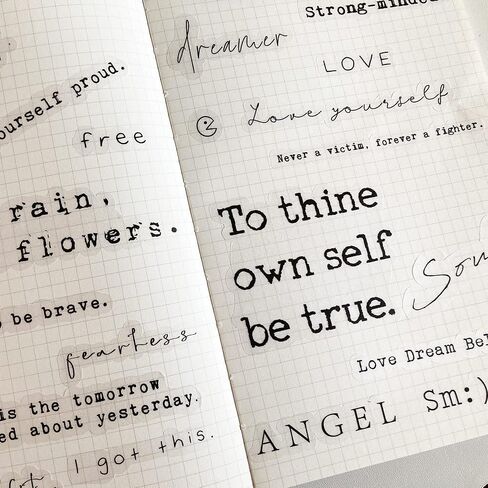 ourself proud.
free
rain,
flowers.
be brave.
fearless
is the tomorrow
ed about yesterday.
I got this.
dreamer
Strong-minded
LOVE
Love yourself
Never a victim, forever a fighter.
To thine
own self
be true.
Love Dream Bel
ANGEL Sm:)